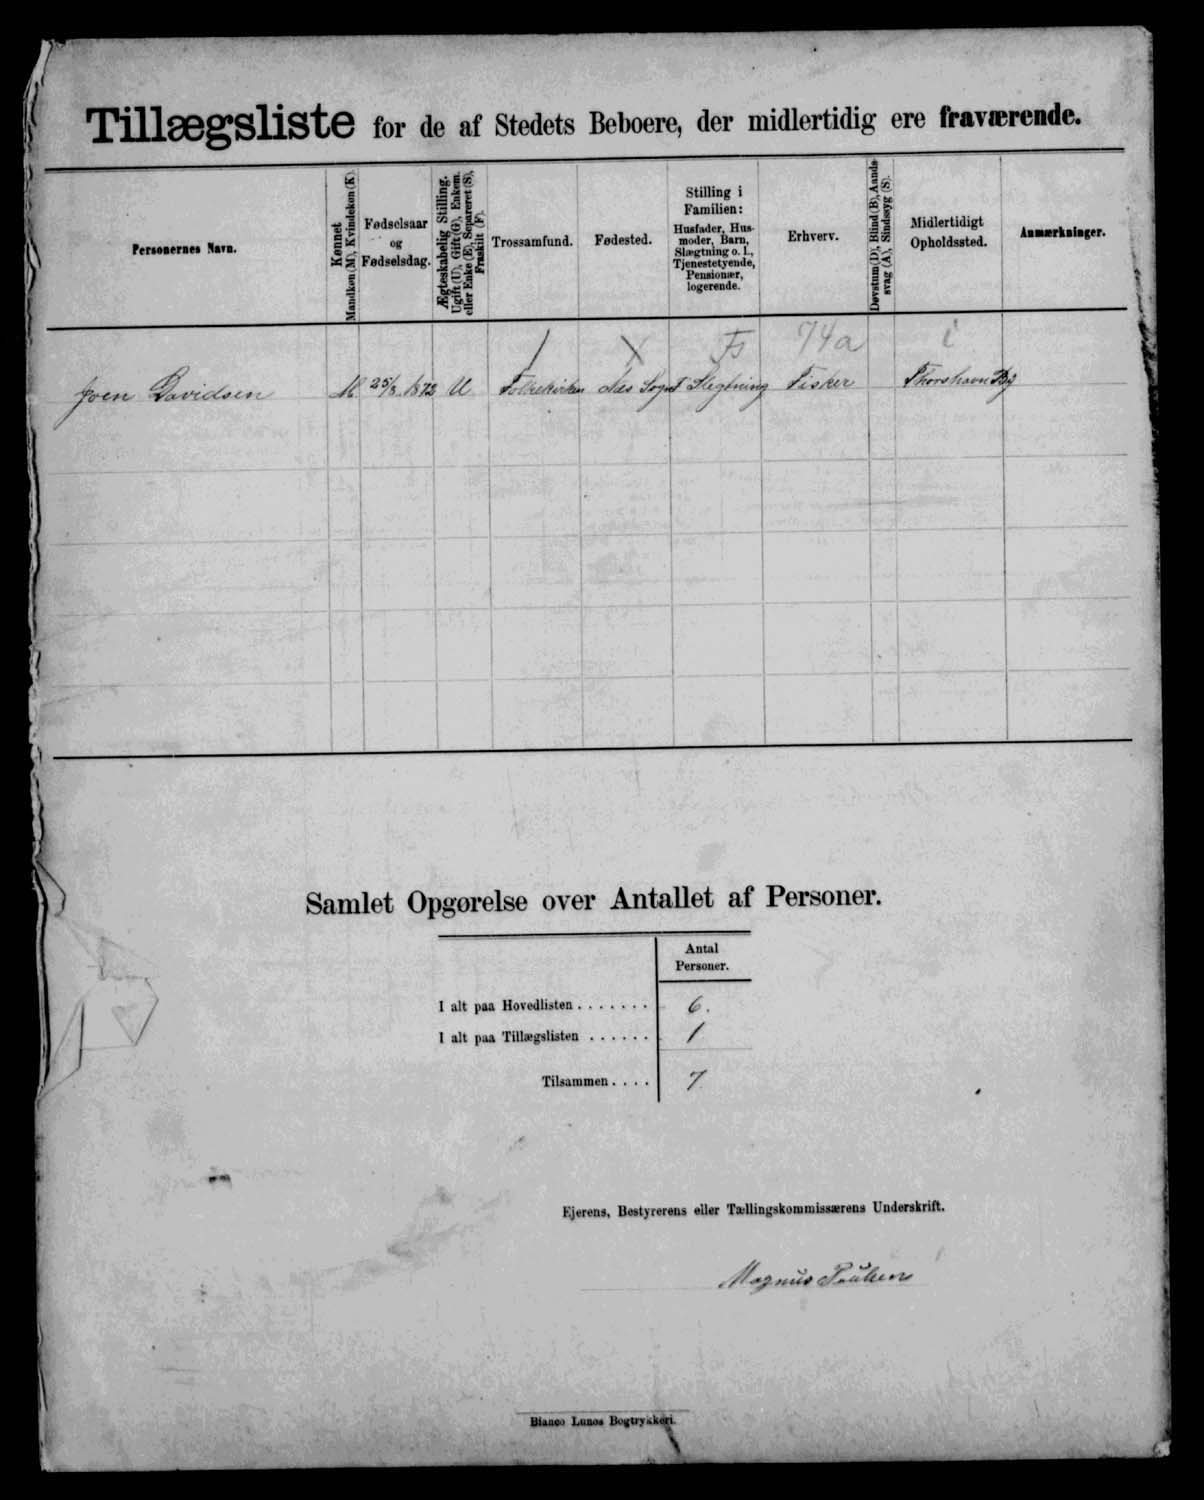 Tillægsliste for de af Stedets Beboere, der midlertidig ere fraværende.
Personernes Navn.
Kønnet
Mandkøn (M), Kvindekøn (K).
Fødselsaar
og
Fødselsdag.
Ægteskabelig Stilling.
Ugift (U), Gift (G), Enkem.
eller Enke (E), Separeret (S),
Fraskilt (F).
Trossamfund.
Fødested.
Stilling i
Familien:
Husfader, Hus-
moder, Barn,
Slægtning o. l.,
Tjenestetyende,
Pensionær,
logerende.
Erhverv.
Døvstum (D), Blind (B), Aands-
svag (A), Sindssyg (S).
Midlertidigt
Opholdssted.
Anmærkninger.
/ X Fs 74a i
Joen Davidsen M 25/8 1872 U Folkekirken Næs Sogn Slegtning Fisker Thorshavn By
Samlet Opgørelse over Antallet af Personer.
Antal
Personer.
I alt paa Hovedlisten . . . . . . . 6.
I alt paa Tillægslisten . . . . . . 1
Tilsammen . . . . 7
Ejerens, Bestyrerens eller Tællingskommissærens Underskrift.
Magnus Poulsen
Bianco Lunos Bogtrykkeri.